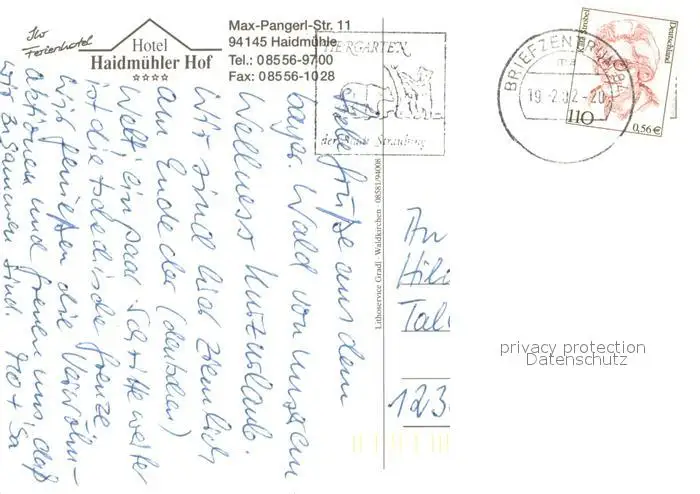 Ihr
Ferienhotel
Hotel
Haidmühler Hof
Max-Pangerl-Str. 11
94145 Haidmühle
Tel.: 08556-9700
Fax: 08556-1028
TIERGARTEN
der Stadt Straubing
BRIEFZENTRUM 94
ma
19.-2.02-20
Käte Strobel
Deutschland
110
0,56 €
Liebe Grüße aus dem
bayr. Wald von unserem
Wellness Kurzurlaub.
Wir sind hier ziemlich
am Ende der (deutschen)
Welt, ein paar Schritte weiter
ist die tschechische Grenze.
Wir genießen die Verwöhn-
aktionen und freuen uns, daß
wir zusammen sind.
Lithoservice Gradl · Waldkirchen · 08581/94008
An
Hil
Tal
123
privacy protection
Datenschutz